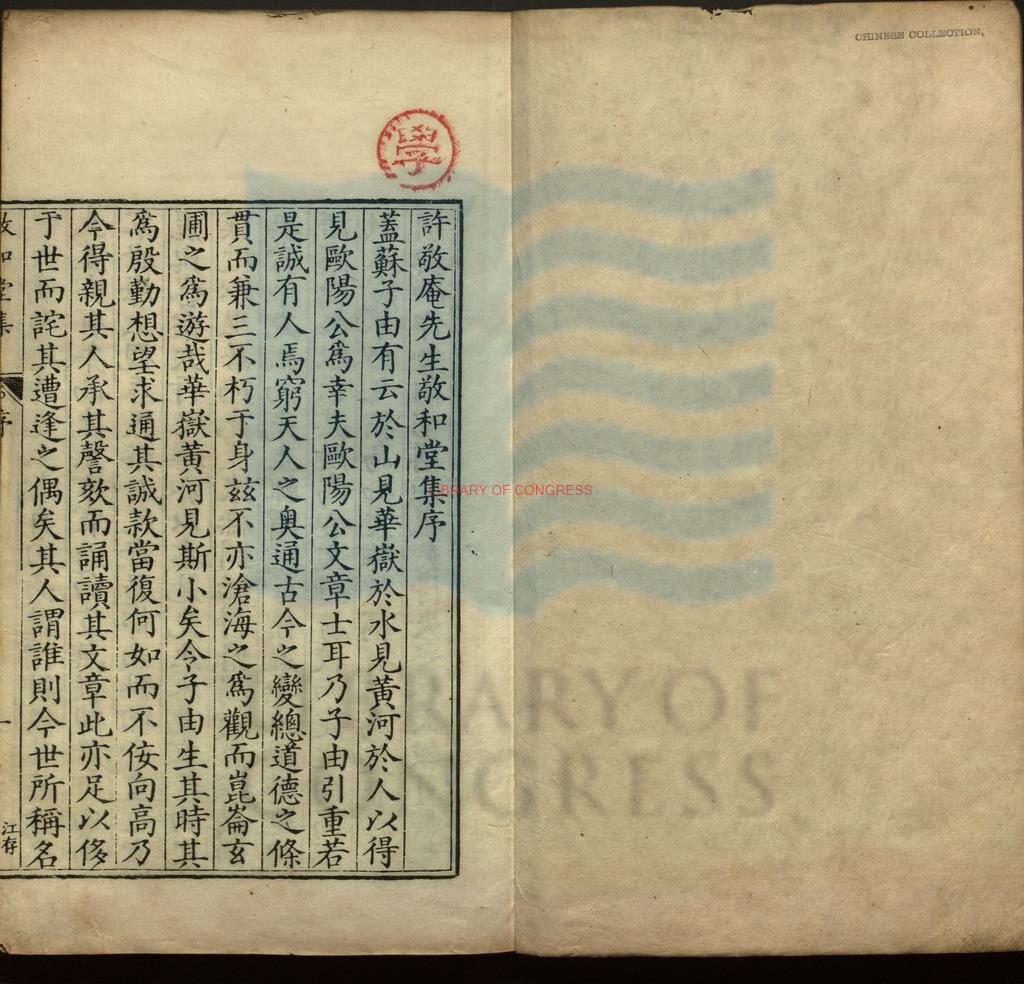 CHINESE COLLECTION,
學
許敬庵先生敬和堂集序
蓋蘇子由有云於山見華嶽於水見黃河於人以得
見歐陽公爲幸夫歐陽公文章士耳乃子由引重若
是誠有人焉窮天人之奧通古今之變總道德之條
貫而兼三不朽于身玆不亦滄海之爲觀而崑崙玄
圃之爲遊哉華嶽黃河見斯小矣令子由生其時其
爲殷勤想望求通其誠款當復何如而不佞向高乃
今得親其人承其謦欬而誦讀其文章此亦足以侈
于世而詫其遭逢之偶矣其人謂誰則今世所稱名
敬和堂集
序
一
江存
LIBRARY OF CONGRESS
LIBRARY OF
CONGRESS